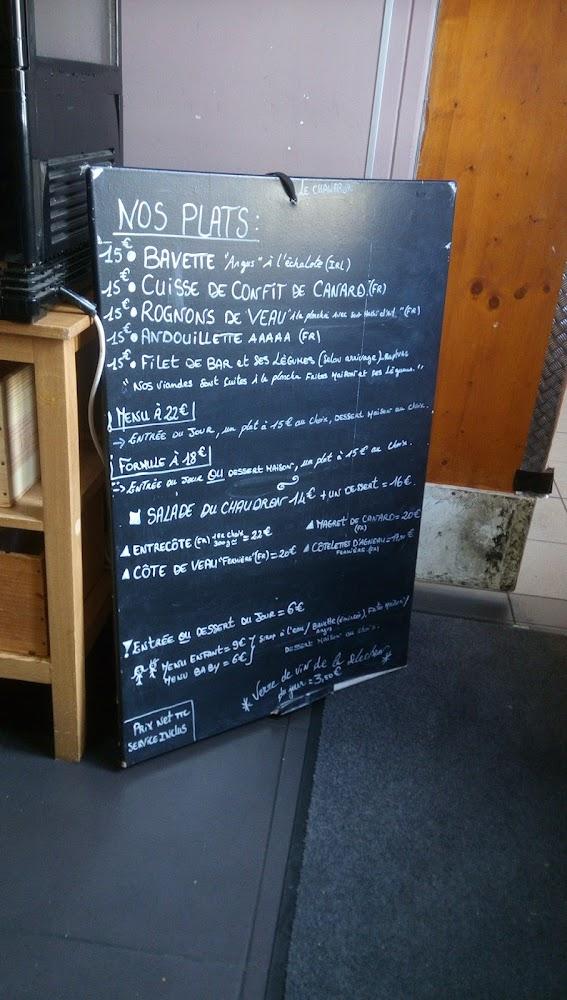 LE CHAUDRON
NOS PLATS:
15€ • BAVETTE "Angus" à l'échalote (IRL)
15€ • CUISSE DE CONFIT DE CANARD (FR)
15€ • ROGNONS DE VEAU "à la plancha avec son" (FR)
15€ • ANDOUILLETTE AAAAA (FR)
15€ • FILET DE BAR et SES LÉGUMES (Selon arrivage)
"NOS viandes sont cuites à la plancha Frites MAISON et ses légumes."
MENU À 22€
→ ENTRÉE DU JOUR, un plat à 15€ au choix, DESSERT MAISON au choix.
FORMULE À 18€
→ ENTRÉE DU JOUR OU DESSERT MAISON, un plat à 15€ au choix.
SALADE DU CHAUDRON 14€ + UN DESSERT = 16€.
▲ ENTRECÔTE (FR) 1er choix 300gr = 22€ ▲ MAGRET DE CANARD = 20€ (FR)
▲ CÔTE DE VEAU "FERMIÈRE" (FR) = 20€ ▲ CÔTELETTES D'AGNEAU = FERMIÈRE (FR)
ENTRÉE OU DESSERT DU JOUR = 6€
MENU ENFANT = 9€ Sirop à l'eau / BAVETTE Angus (émincée) Frites MAISON /
MENU BABY = 6€ DESSERT MAISON au choix.
* Verre de vin de la sélection *
du jour = 3,50€
PRIX NET TTC
SERVICE INCLUS